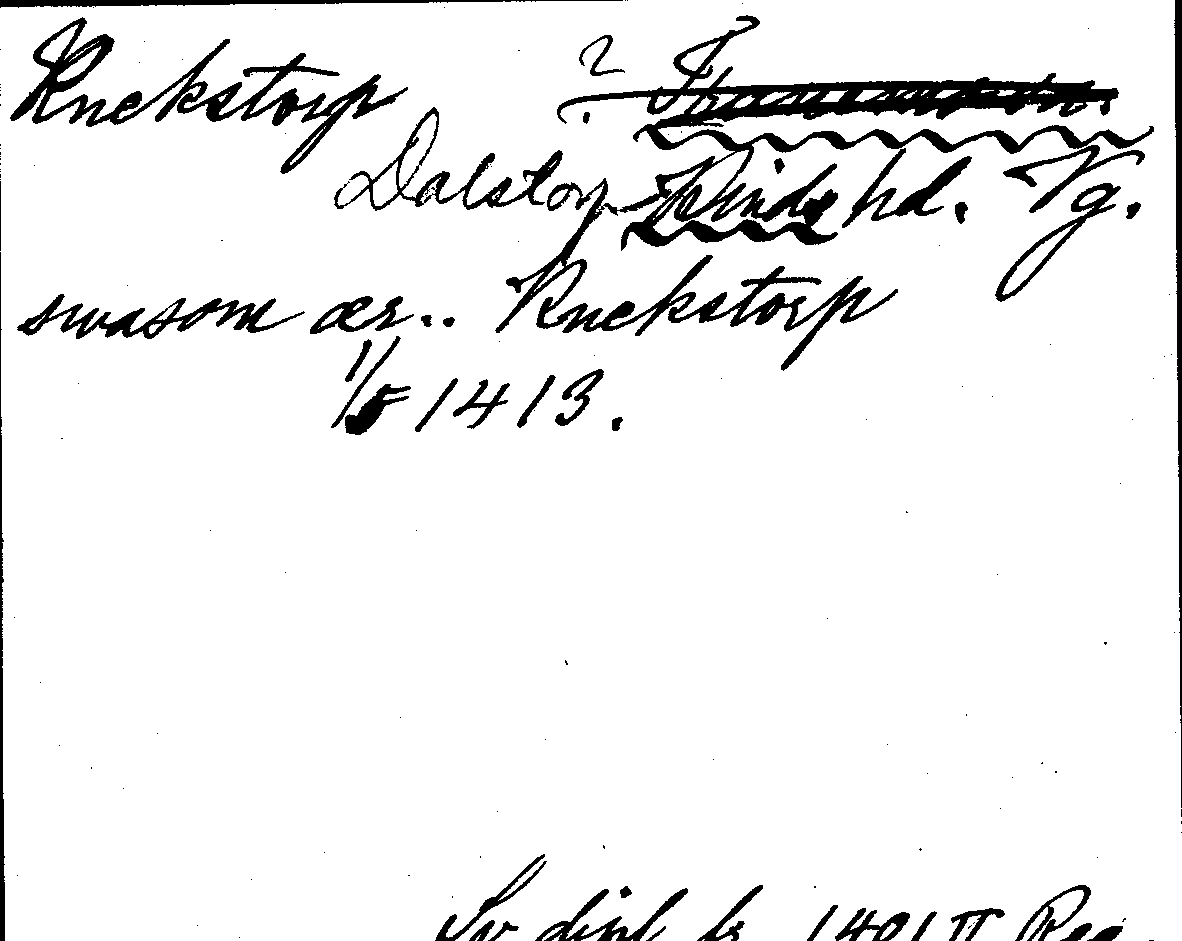 Knekstorp ?
Dalstorp Kinds hd. Vg.
swasom ær.. Knekstorp
1/5 1413.
Sv. dipl. fr. 1401 II Reg.